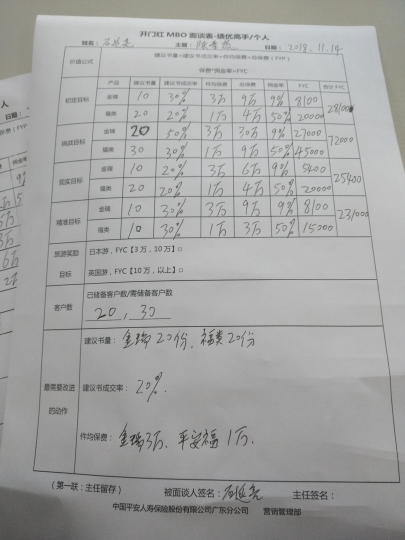 开门红 MBO 面谈表-绩优高手/个人
姓名: 主管: 日期: 2018.11.14
价值公式 建议书量×建议书成交率×件均保费=总保费(FYP)
保费*佣金率=FYC
产品 建议书量 建议书成交率 件均保费 总保费 佣金率 FYC 合计FYC
初定目标 金瑞 10 30% 3万 9万 9% 8100 28100
福类 20 20% 1万 4万 50% 20000
挑战目标 金瑞 20 50% 3万 30万 9% 27000 72000
福类 30 30% 1万 9万 50% 45000
现实目标 金瑞 10 20% 3万 6万 9% 5400 25400
福类 20 20% 1万 4万 50% 20000
精准目标 金瑞 10 30% 3万 9万 9% 8100 231000
福类 10 30% 1万 3万 50% 15000
旅游奖励 日本游,FYC【3万,10万】□
目标 英国游,FYC【10万,以上】□
客户数 已储备客户数/需储备客户数
20,30
建议书量: 金瑞20份, 福类20份
最需要改进的动作 建议书成交率: 20%.
件均保费: 金瑞3万, 平安福1万.
(第一联:主任留存) 被面谈人签名: 主任签名:
中国平安人寿保险股份有限公司广东分公司 营销管理部